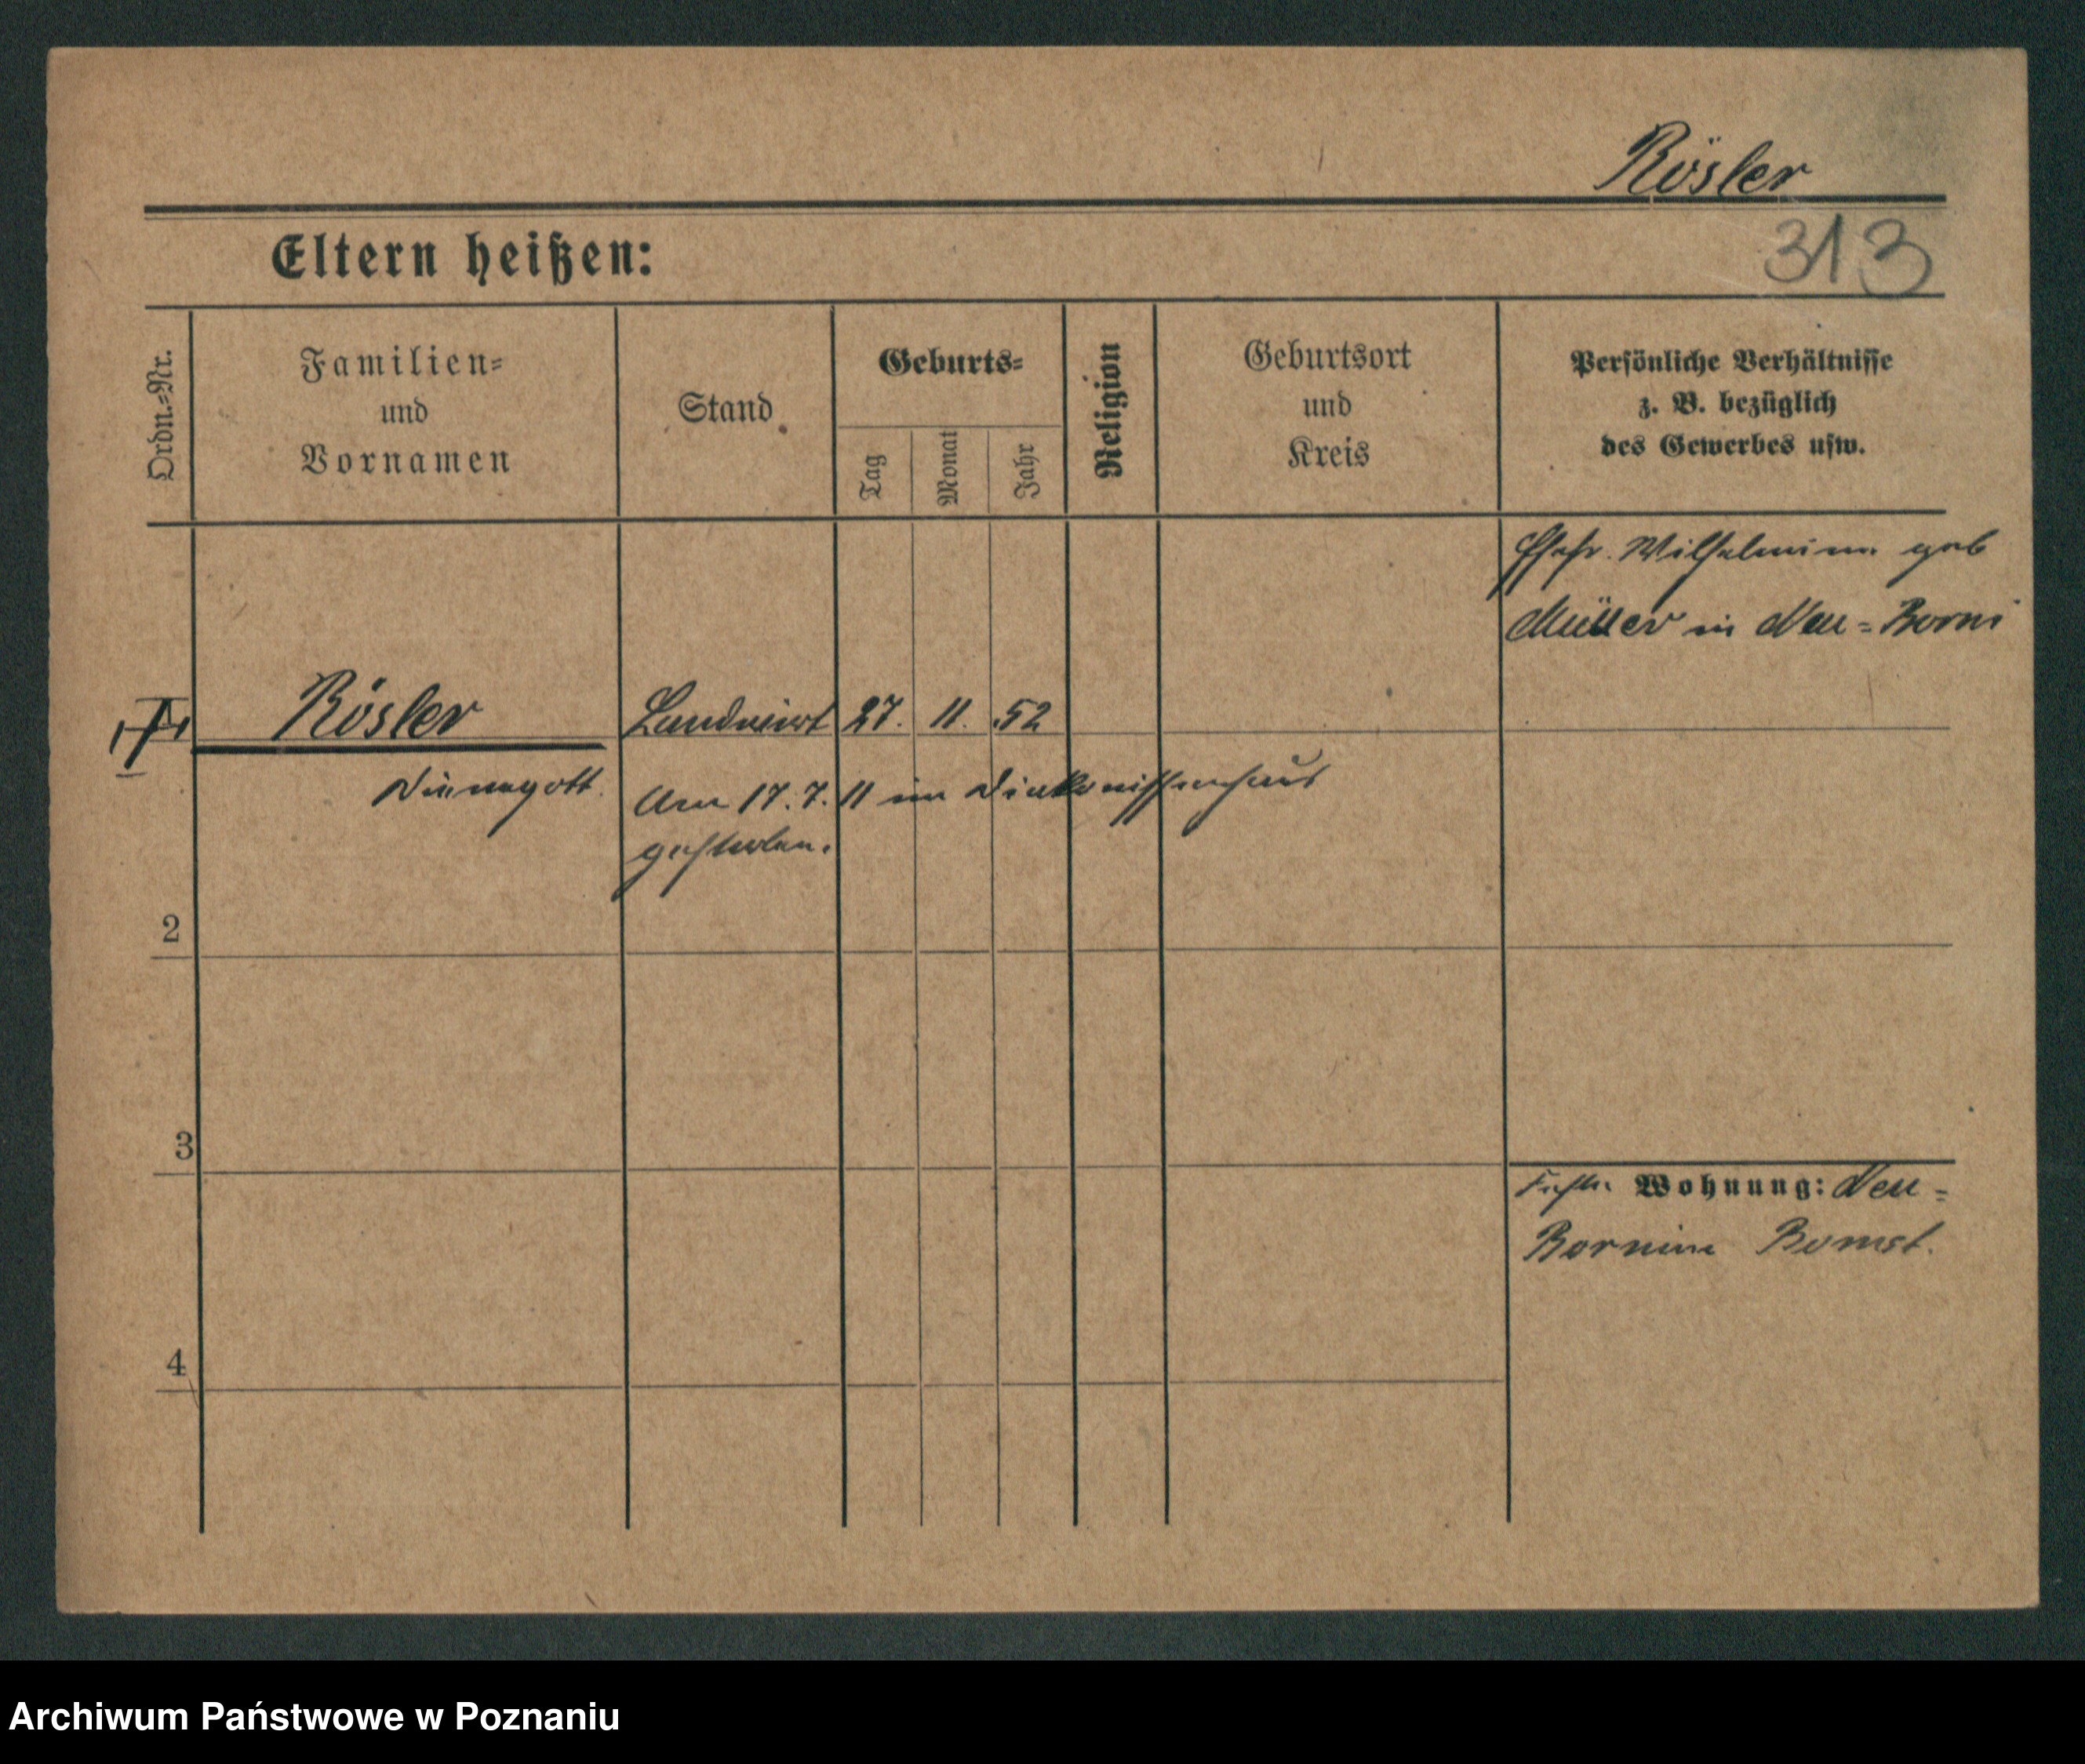 Rösler
313
Eltern heißen:
Ordn.-Nr.
Familien-
und
Vornamen
Stand
Geburts-
Tag
Monat
Jahr
Religion
Geburtsort
und
Kreis
Persönliche Verhältnisse
z. B. bezüglich
des Gewerbes usw.
Ehefr. Wilhelmine geb
Müller in Neu-Borni
Rösler
Landwirt 27. 11. 52
Am 17. 7. 11 im Diakonissenhaus
gestorben.
2
3
Wohnung: Neu-
Bomst.
4
Archiwum Państwowe w Poznaniu